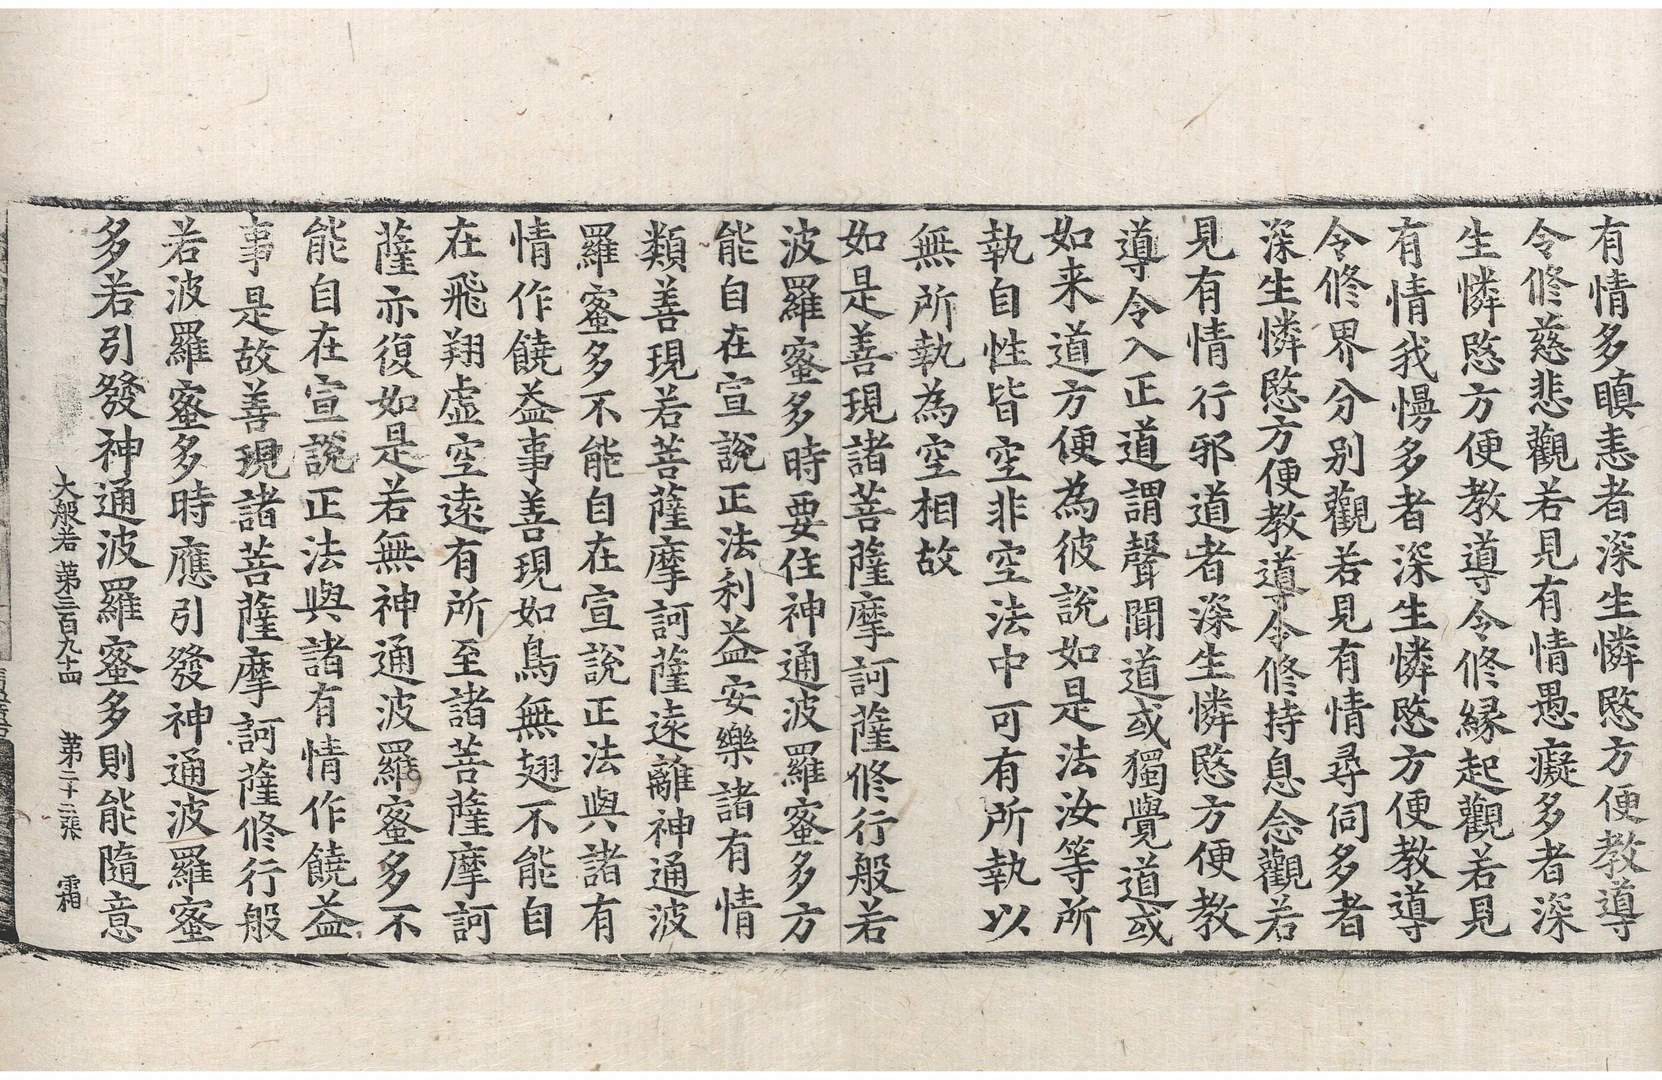 有情多瞋恚者深生憐愍方便教導
令修慈悲觀若見有情愚癡多者深
生憐愍方便教導令修緣起觀若見
有情我慢多者深生憐愍方便教導
令修界分別觀若見有情尋伺多者
深生憐愍方便教導令修持息念觀若
見有情行邪道者深生憐愍方便教
導令入正道謂聲聞道或獨覺道或
如来道方便為彼說如是法汝等所
執自性皆空非空法中可有所執以
無所執為空相故
如是善現諸菩薩摩訶薩修行般若
波羅蜜多時要住神通波羅蜜多方
能自在宣說正法利益安樂諸有情
類善現若菩薩摩訶薩遠離神通波
羅蜜多不能自在宣說正法與諸有
情作饒益事善現如鳥無翅不能自
在飛翔虛空遠有所至諸菩薩摩訶
薩亦復如是若無神通波羅蜜多不
能自在宣說正法與諸有情作饒益
事是故善現諸菩薩摩訶薩修行般
若波羅蜜多時應引發神通波羅蜜
多若引發神通波羅蜜多則能隨意
大般若 第三百九十四 第二十二張 霜